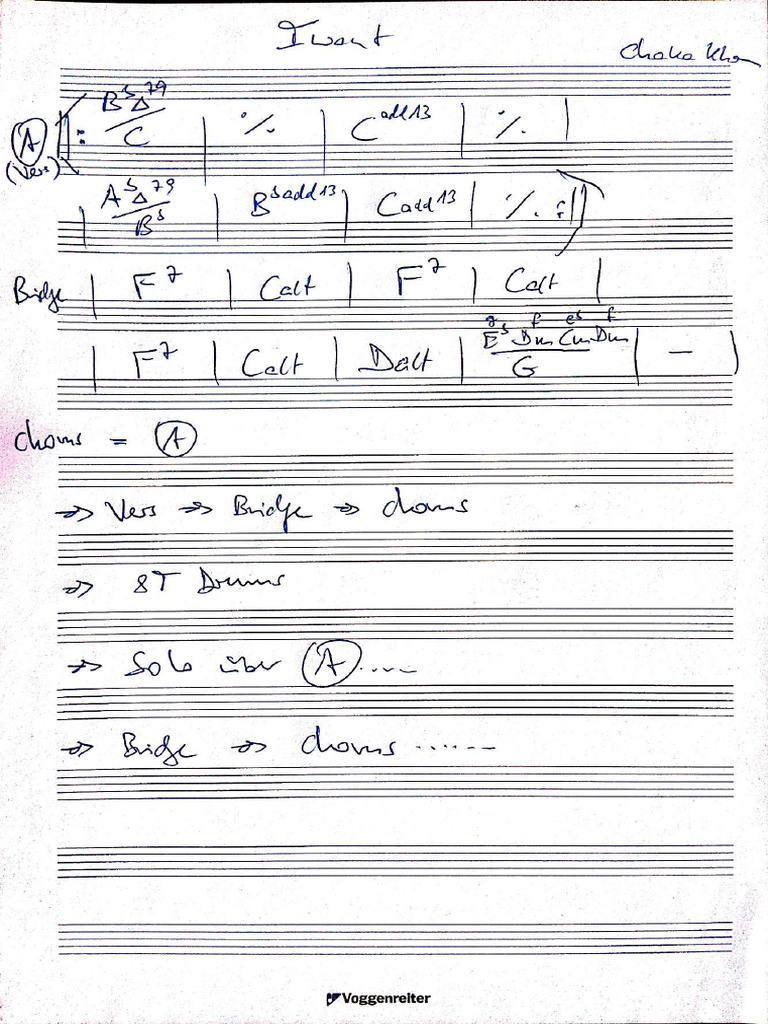 I want
Chaka Khan
A (Vers) ‖: B♭Δ79/C | ٪ | Cadd13 | ٪ |
| A♭Δ79/B♭ | B♭add13 | Cadd13 | ٪ :‖
Bridge | F7 | Calt | F7 | Calt |
g f e♭ f
| F7 | Calt | Dalt | E♭ Dm Cm Dm/G | – |
chorus = A
→ Vers → Bridge → chorus
→ 8T Drums
→ Solo über A ....
→ Bridge → chorus ......
Voggenreiter